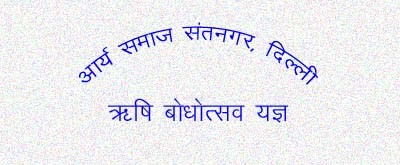 आर्य समाज संतनगर, दिल्ली
ऋषि बोधोत्सव यज्ञ